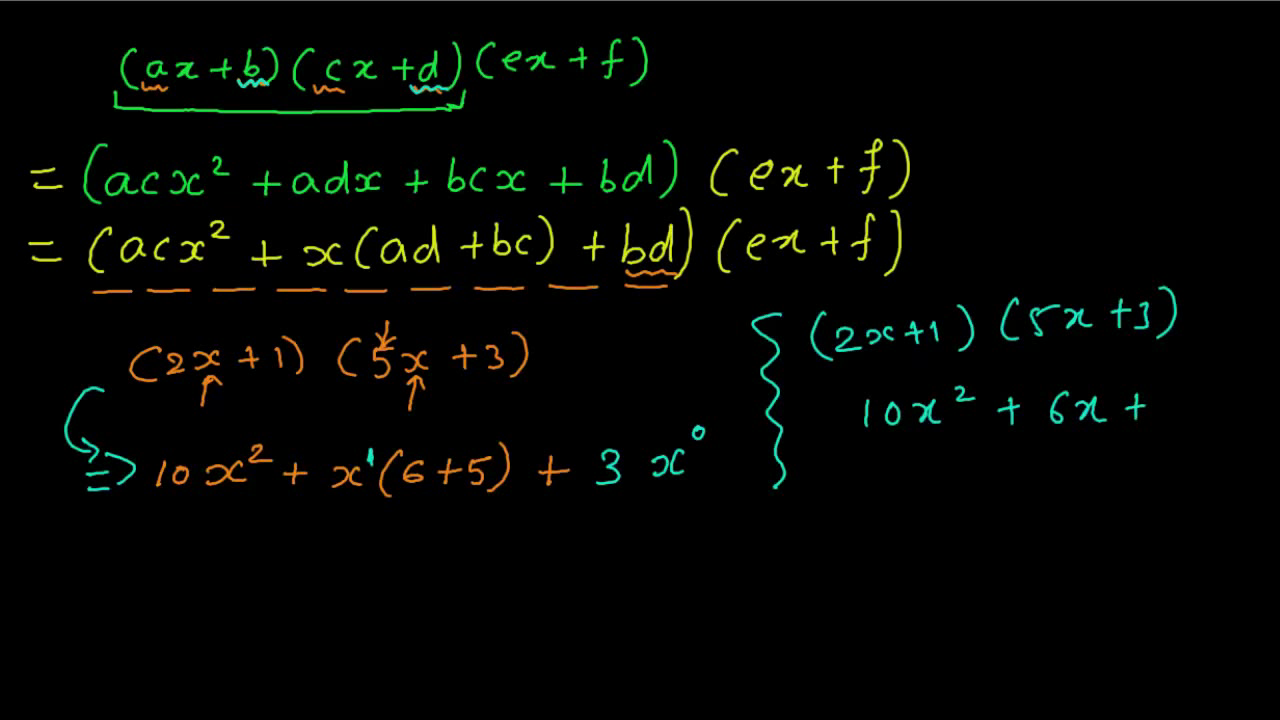 (ax+b)(cx+d)(ex+f)
= (acx² + adx + bcx + bd) (ex + f)
= (acx² + x(ad+bc) + bd) (ex+f)
(2x+1) (5x+3)
⇒ 10x² + x¹(6+5) + 3 x⁰
(2x+1) (5x+3)
10x² + 6x +